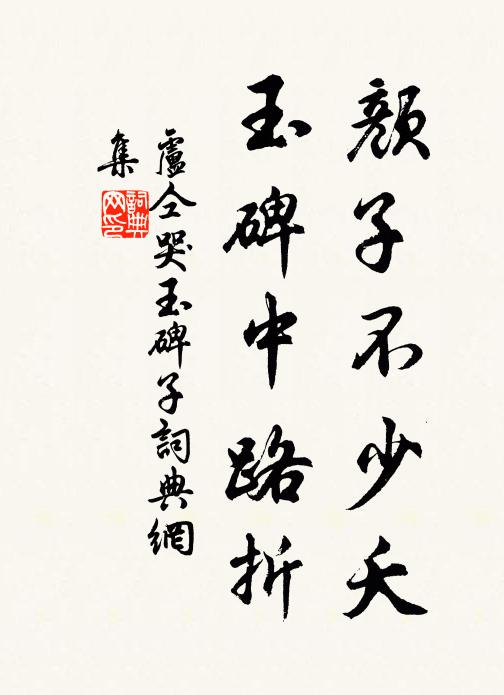 顏子不少夭
玉碑中路折
盧仝哭玉碑子詞典網
集
詞典
网印